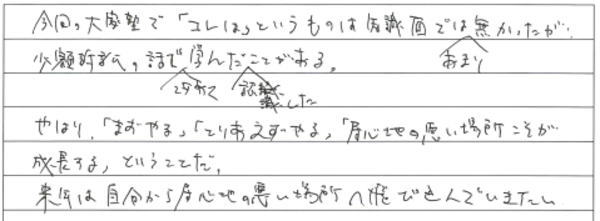 今回の大家塾で「コレは」というものは知識面では無かったが、
少額訴訟の話で学んだことがある。
あまり
改めて 認識した
やはり、「まずやる」「とりあえずやる」「居心地の悪い場所こそが
成長する」ということだ。
来年は自分から居心地の悪い場所へ飛び込んでいきたい